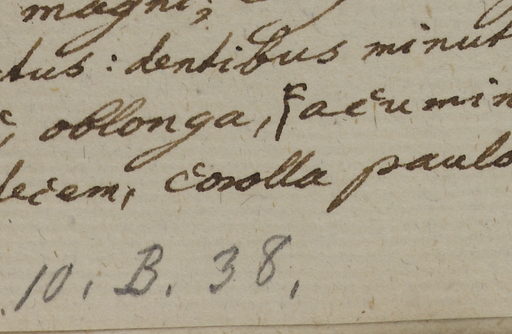 magni,
ctus: dentibus minut
oblonga, acumin
decem, corolla paulo
.10. B. 38.